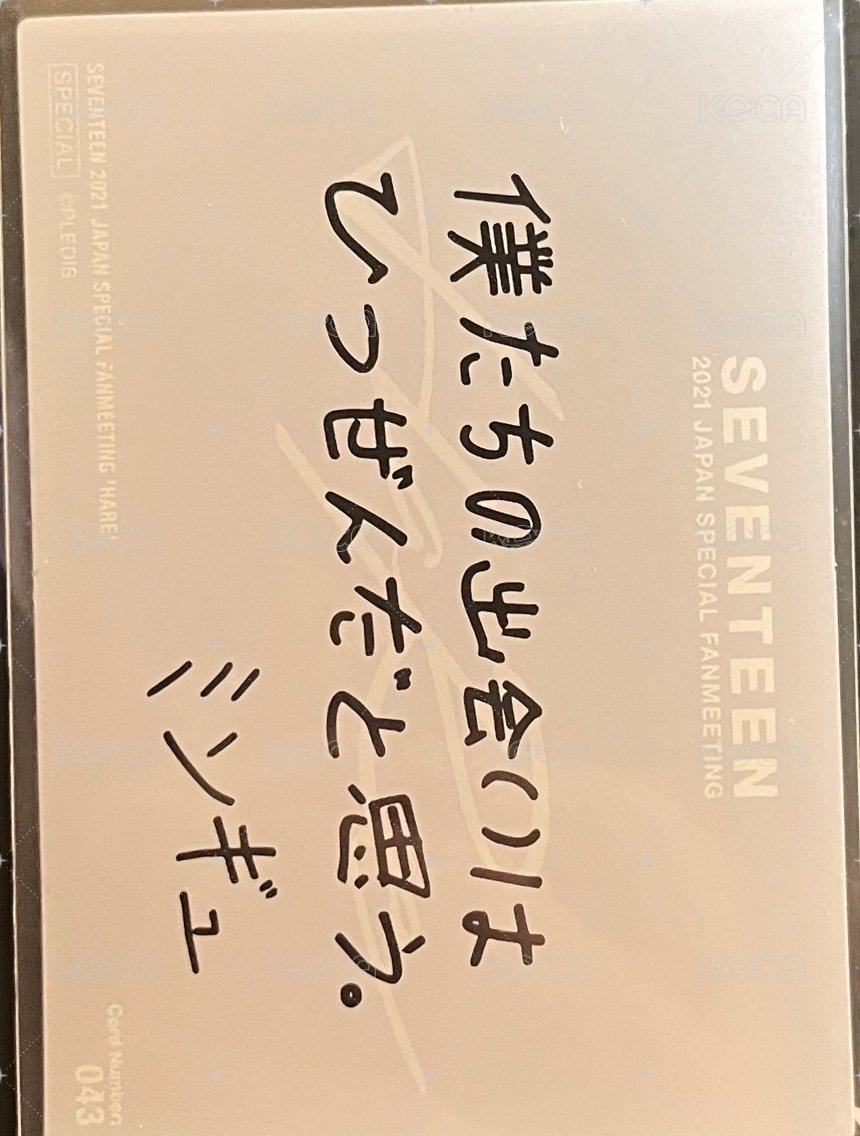 SEVENTEEN
2021 JAPAN SPECIAL FANMEETING
僕たちの出会いは
ひつぜんだと思う。
ミンギュ
SEVENTEEN 2021 JAPAN SPECIAL FANMEETING 'HARE'
SPECIAL ©PLEDIS
Card Number:
043
KOCA